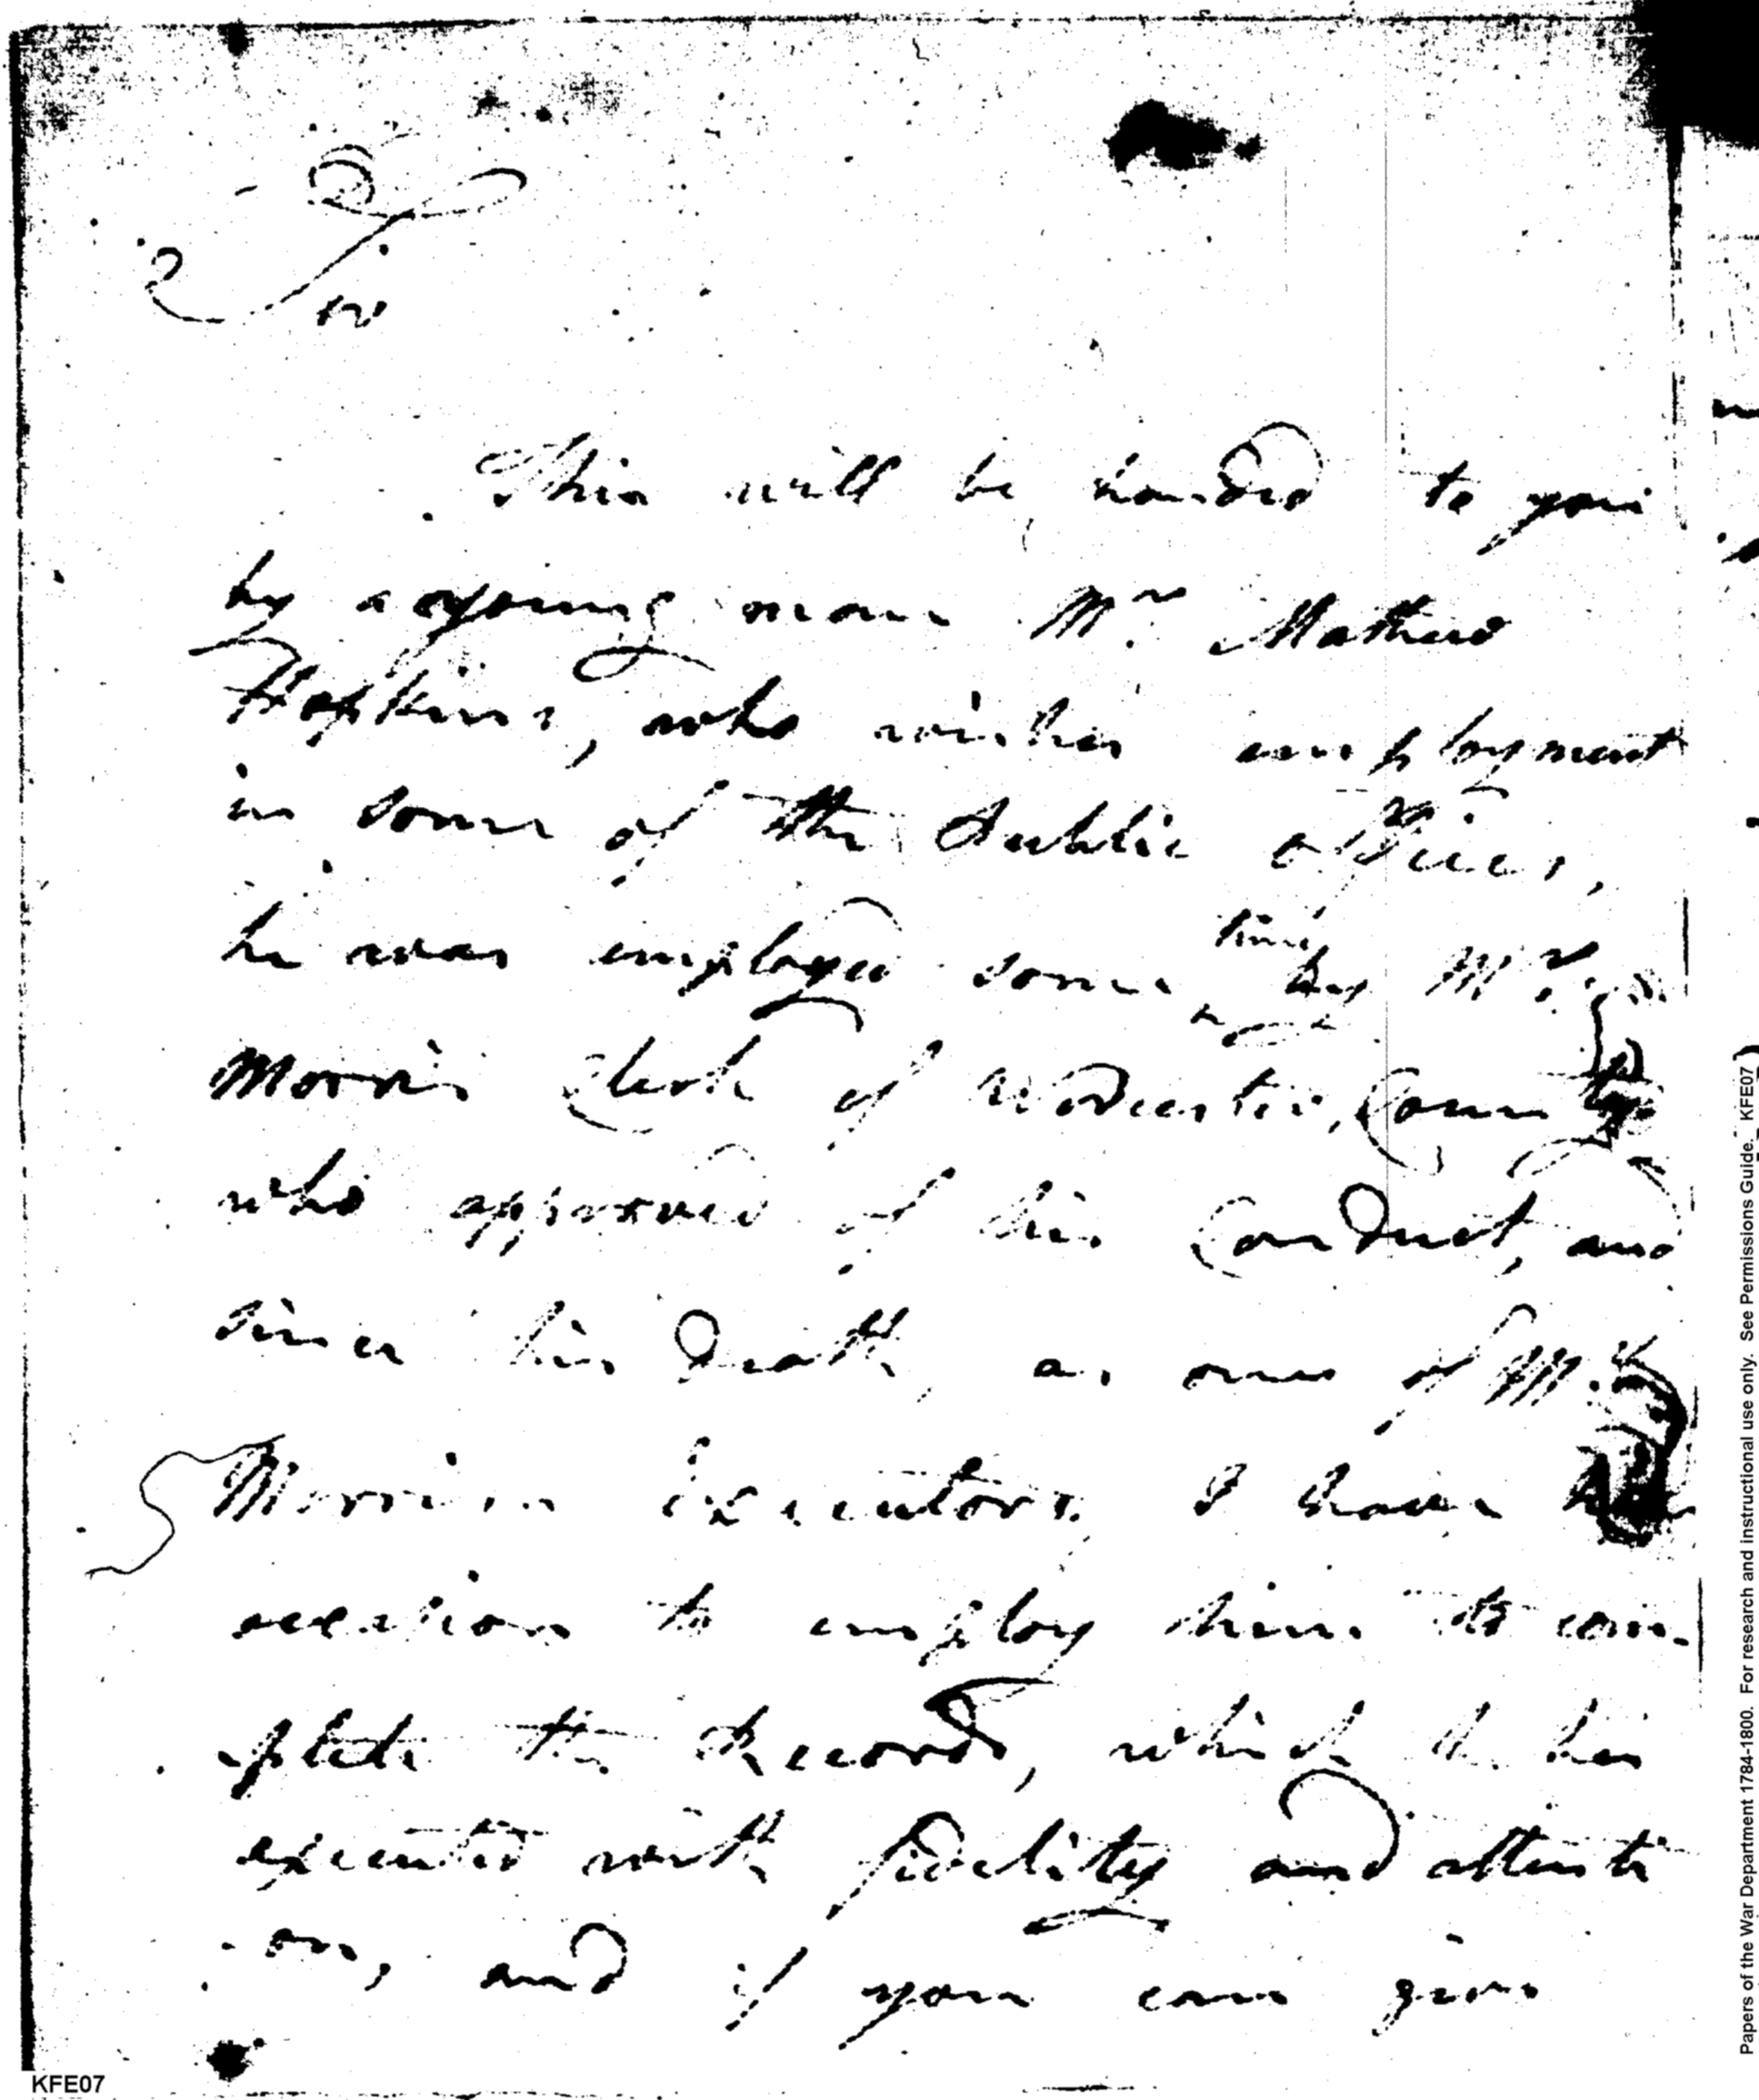 Sir
This will be handed to you
by a young man Mr. Mathew
Hopkins, who wishes employment
in some of the Public offices,
he was employed some time by Mr.
Morris Clerk of Worcester, County
who approved of his Conduct, and
since his Death, as one of Mr.
Morris's Executors. I have had
occasion to employ him to com-
plete the Records, which he has
executed with fidelity and attenti
on, and if you can give
KFE07
Papers of the War Department 1784-1800. For research and instructional use only. See Permissions Guide. KFE07